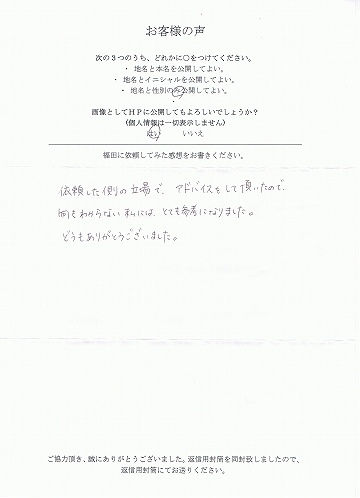 お客様の声
次の3つのうち、どれかに○をつけてください。
・ 地名と本名を公開してよい。
・ 地名とイニシャルを公開してよい。
・ 地名と性別のみ公開してよい。
画像としてHPに公開してもよろしいでしょうか?
(個人情報は一切表示しません)
はい いいえ
福田に依頼してみた感想をお書きください。
依頼した側の立場で、アドバイスをして頂いたので、
何もわからない私には、とても参考になりました。
どうもありがとうございました。
ご協力頂き、誠にありがとうございました。返信用封筒を同封致しましたので、
返信用封筒にてお送りください。